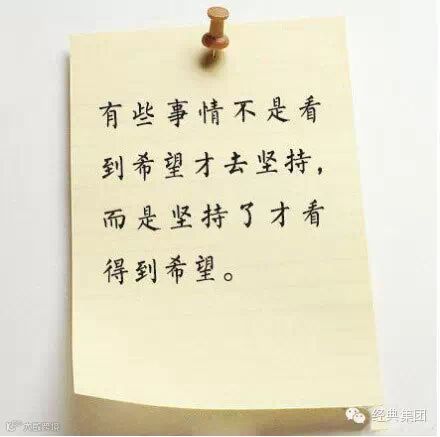 有些事情不是看
到希望才去坚持，
而是坚持了才看
得到希望。
经典集团